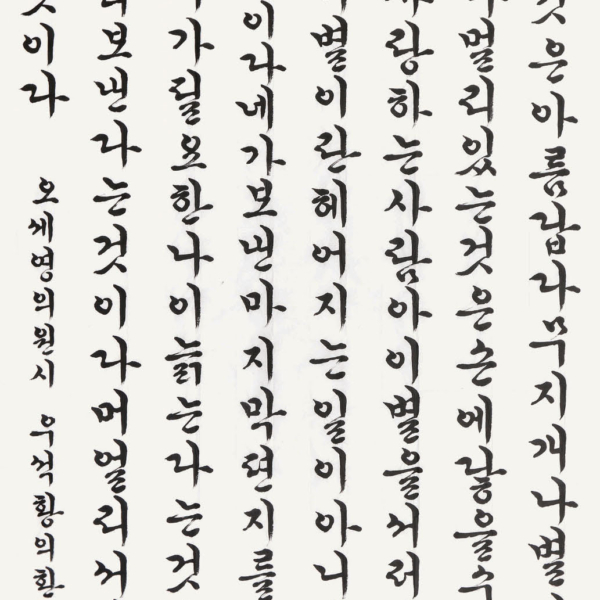 것은아름답다무지개나별
멀리있는것은손에닿을수
사랑하는사람아이별을서러
별이란헤어지는일이아니
이다네가보낸마지막편지를
가필요한나이늙는다는것
보낸다는것이다머얼리서
것이다 오세영의원시 우석황의환